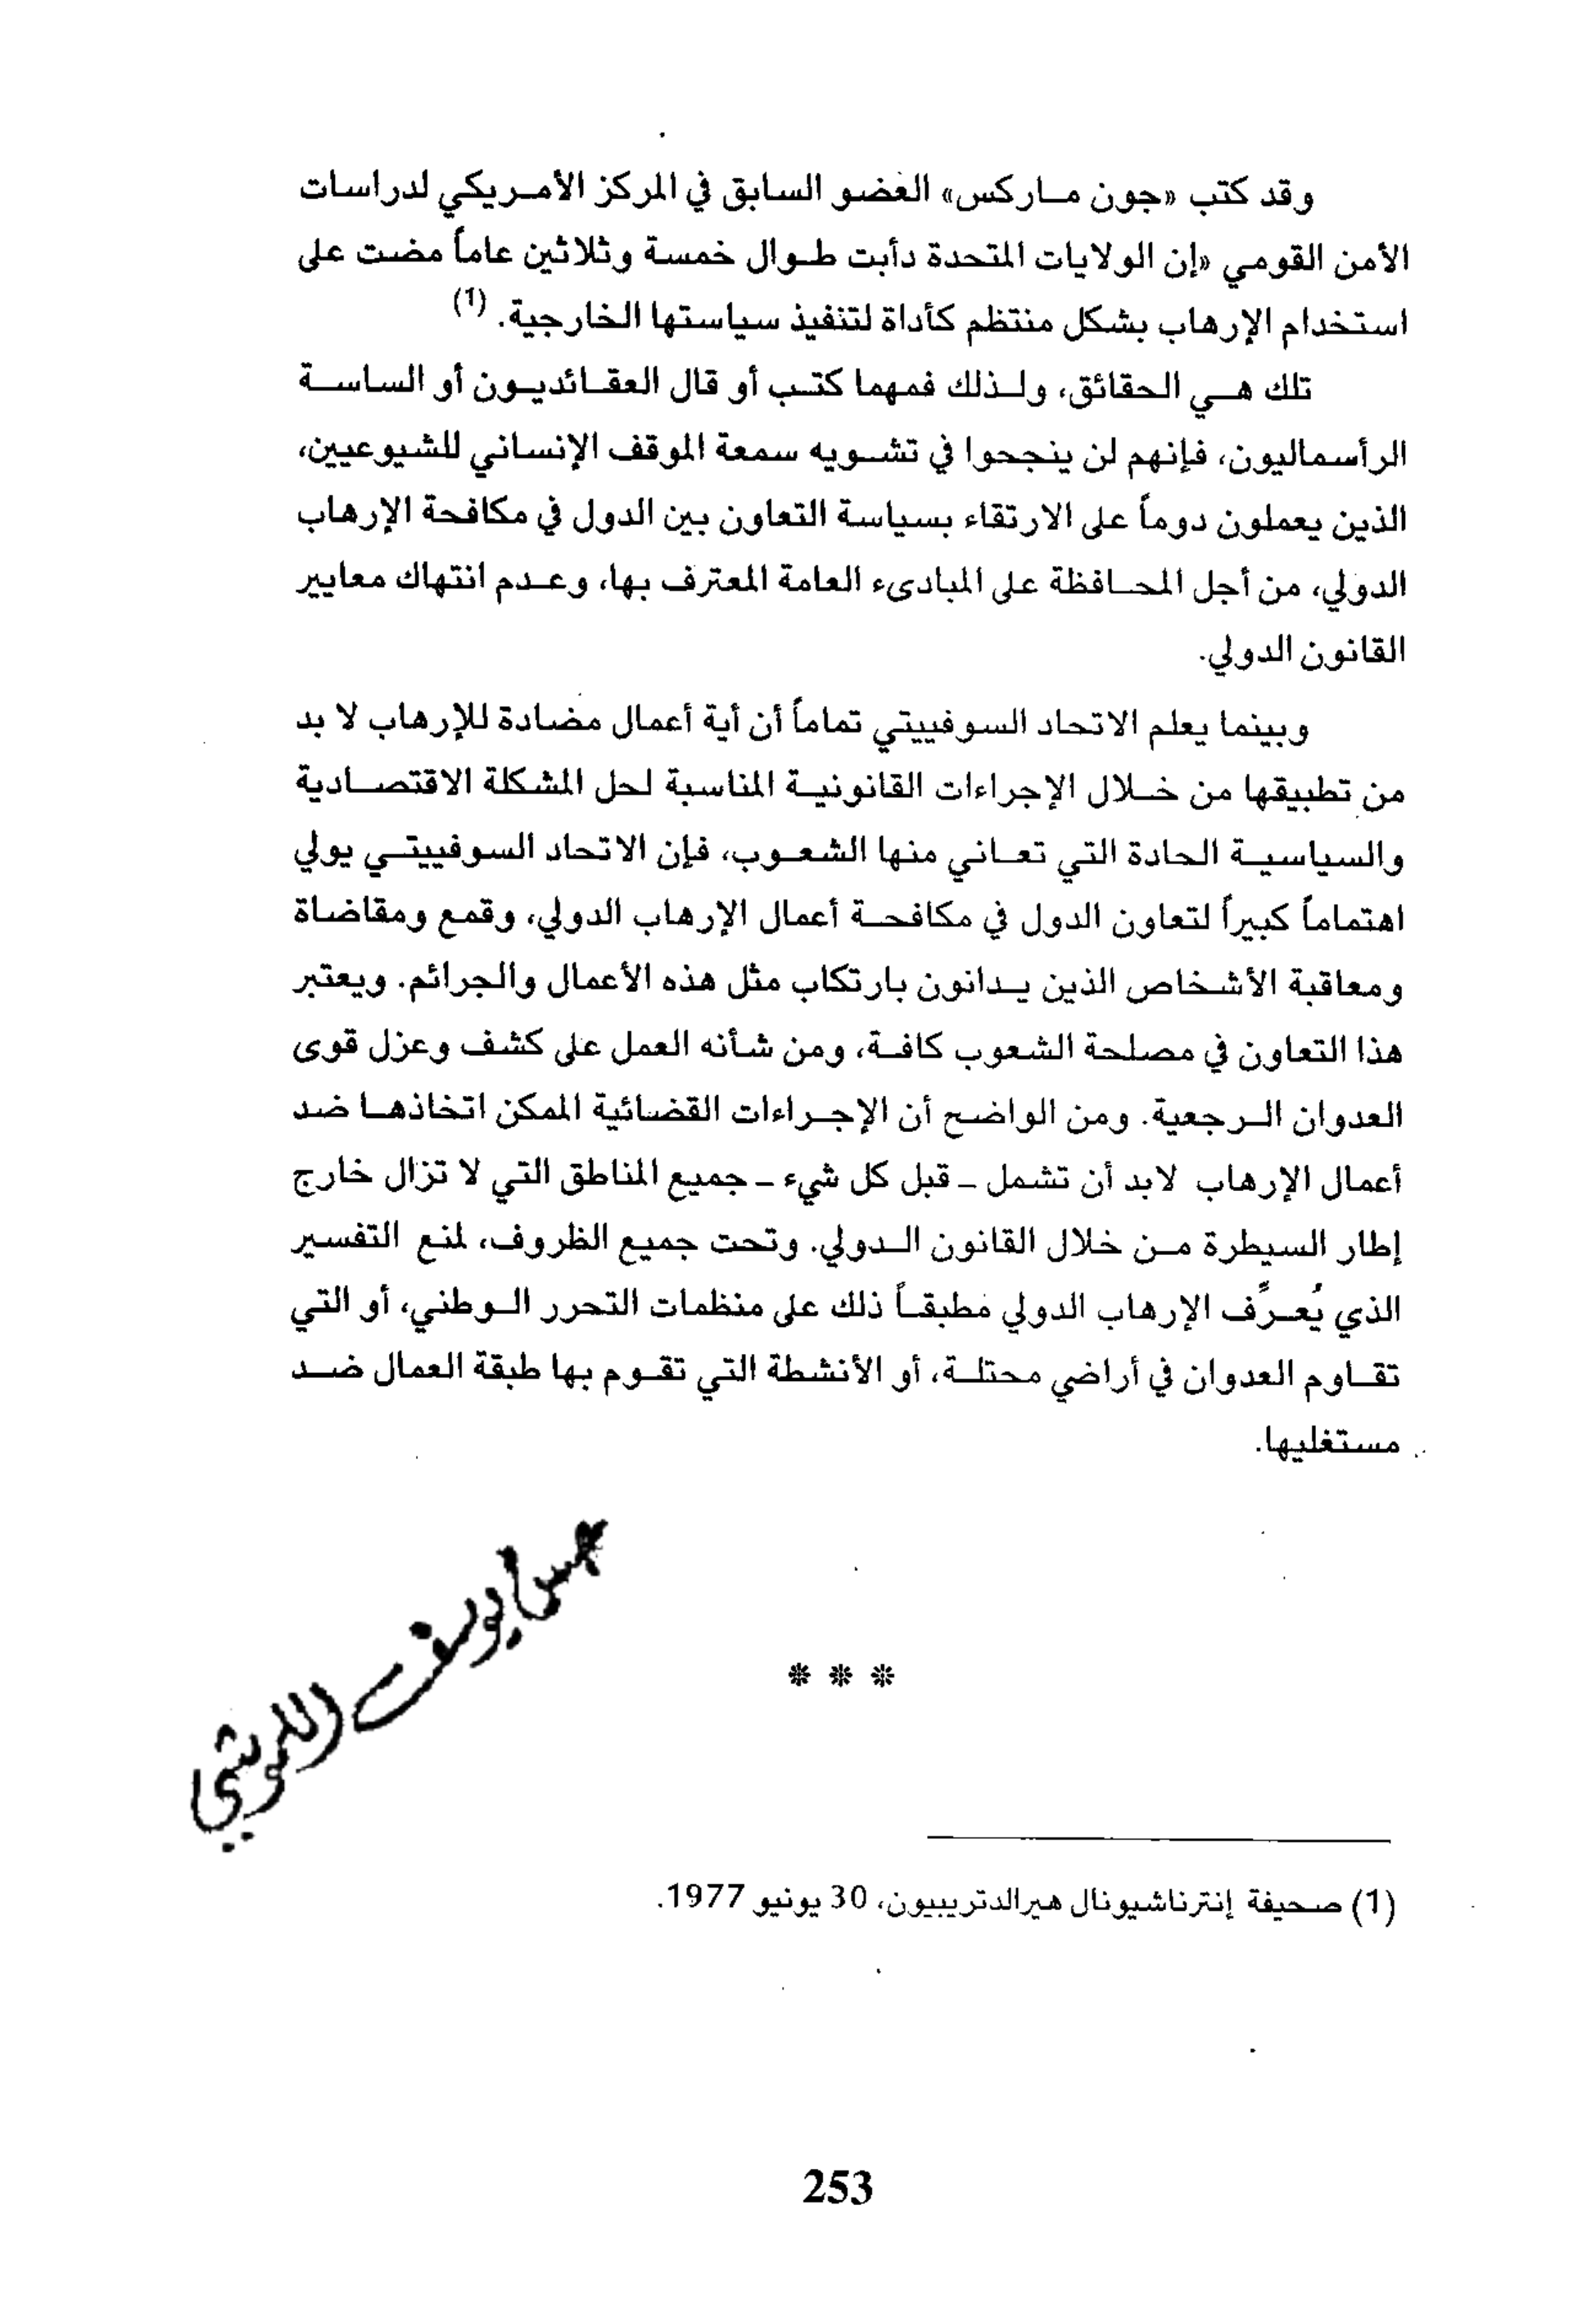 وقد كتب «جون ماركس» العضو السابق في المركز الأمريكي لدراسات
الأمن القومي «إن الولايات المتحدة دأبت طوال خمسة وثلاثين عاماً مضت على
استخدام الإرهاب بشكل منتظم كأداة لتنفيذ سياستها الخارجية. (1)
تلك هي الحقائق، ولذلك فمهما كتب أو قال العقائديون أو الساسة
الرأسماليون، فإنهم لن ينجحوا في تشويه سمعة الموقف الإنساني للشيوعيين،
الذين يعملون دوماً على الارتقاء بسياسة التعاون بين الدول في مكافحة الإرهاب
الدولي، من أجل المحافظة على المبادىء العامة المعترف بها، وعدم انتهاك معايير
القانون الدولي.
وبينما يعلم الاتحاد السوفييتي تماماً أن أية أعمال مضادة للإرهاب لا بد
من تطبيقها من خلال الإجراءات القانونية المناسبة لحل المشكلة الاقتصادية
والسياسية الحادة التي تعاني منها الشعوب، فإن الاتحاد السوفييتي يولي
اهتماماً كبيراً لتعاون الدول في مكافحة أعمال الإرهاب الدولي، وقمع ومقاضاة
ومعاقبة الأشخاص الذين يدانون بارتكاب مثل هذه الأعمال والجرائم. ويعتبر
هذا التعاون في مصلحة الشعوب كافة، ومن شأنه العمل على كشف وعزل قوى
العدوان الرجعية. ومن الواضح أن الإجراءات القضائية الممكن اتخاذها ضد
أعمال الإرهاب لابد أن تشمل - قبل كل شيء - جميع المناطق التي لا تزال خارج
إطار السيطرة من خلال القانون الدولي. وتحت جميع الظروف، لمنع التفسير
الذي يُعرِّف الإرهاب الدولي مطبقاً ذلك على منظمات التحرر الوطني، أو التي
تقاوم العدوان في أراضي محتلة، أو الأنشطة التي تقوم بها طبقة العمال ضد
مستغليها.
* * *
(1) صحيفة إنترناشيونال هيرالدتريبيون، 30 يونيو 1977.
253